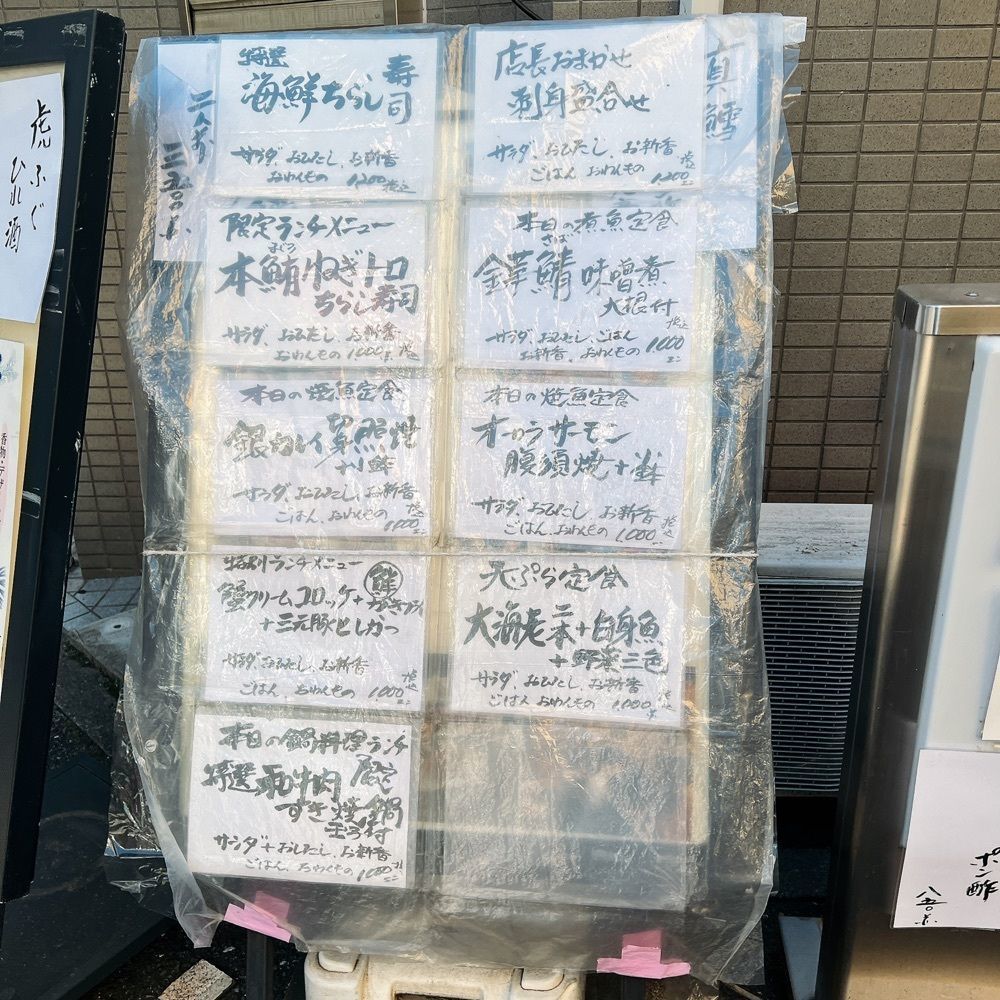 虎ふぐ
ひれ酒
二人前
特選
海鮮ちらし
寿司
サラダ、おひたし、お新香
おわんもの 1,200 税込
店長おまかせ
刺身盛合せ
サラダ、おひたし、お新香
ごはん、おわんもの 1,200 税込
真鱈
限定ランチメニュー
まぐろ
本鮪ねぎトロ
ちらし寿司
サラダ、おひたし、お新香
おわんもの 1,000 税込
本日の煮魚定食
さば
金華鯖味噌煮
大根付
サラダ、おひたし、ごはん
お新香、おわんもの 1,000 税込
本日の焼魚定食
銀カレイ切身照焼
サラダ、おひたし、お新香
ごはん、おわんもの 1,000 税込
本日の焼魚定食
オーロラサーモン
腹須焼+
サラダ、おひたし、お新香
ごはん、おわんもの 1,000 税込
特別ランチメニュー
蟹クリームコロッケ+かきフライ
+三元豚ヒレかつ
サラダ、おひたし、お新香
ごはん、おわんもの 1,000 税込
天ぷら定食
大海老二本+白身魚
+野菜三色
サラダ、おひたし、お新香
ごはん、おわんもの 1,000 税込
本日の鍋料理ランチ
特選 牛肉
すき焼鍋
玉子付
サラダ+おひたし、お新香
ごはん、おわんもの 1,000
ポン酢
八五〇